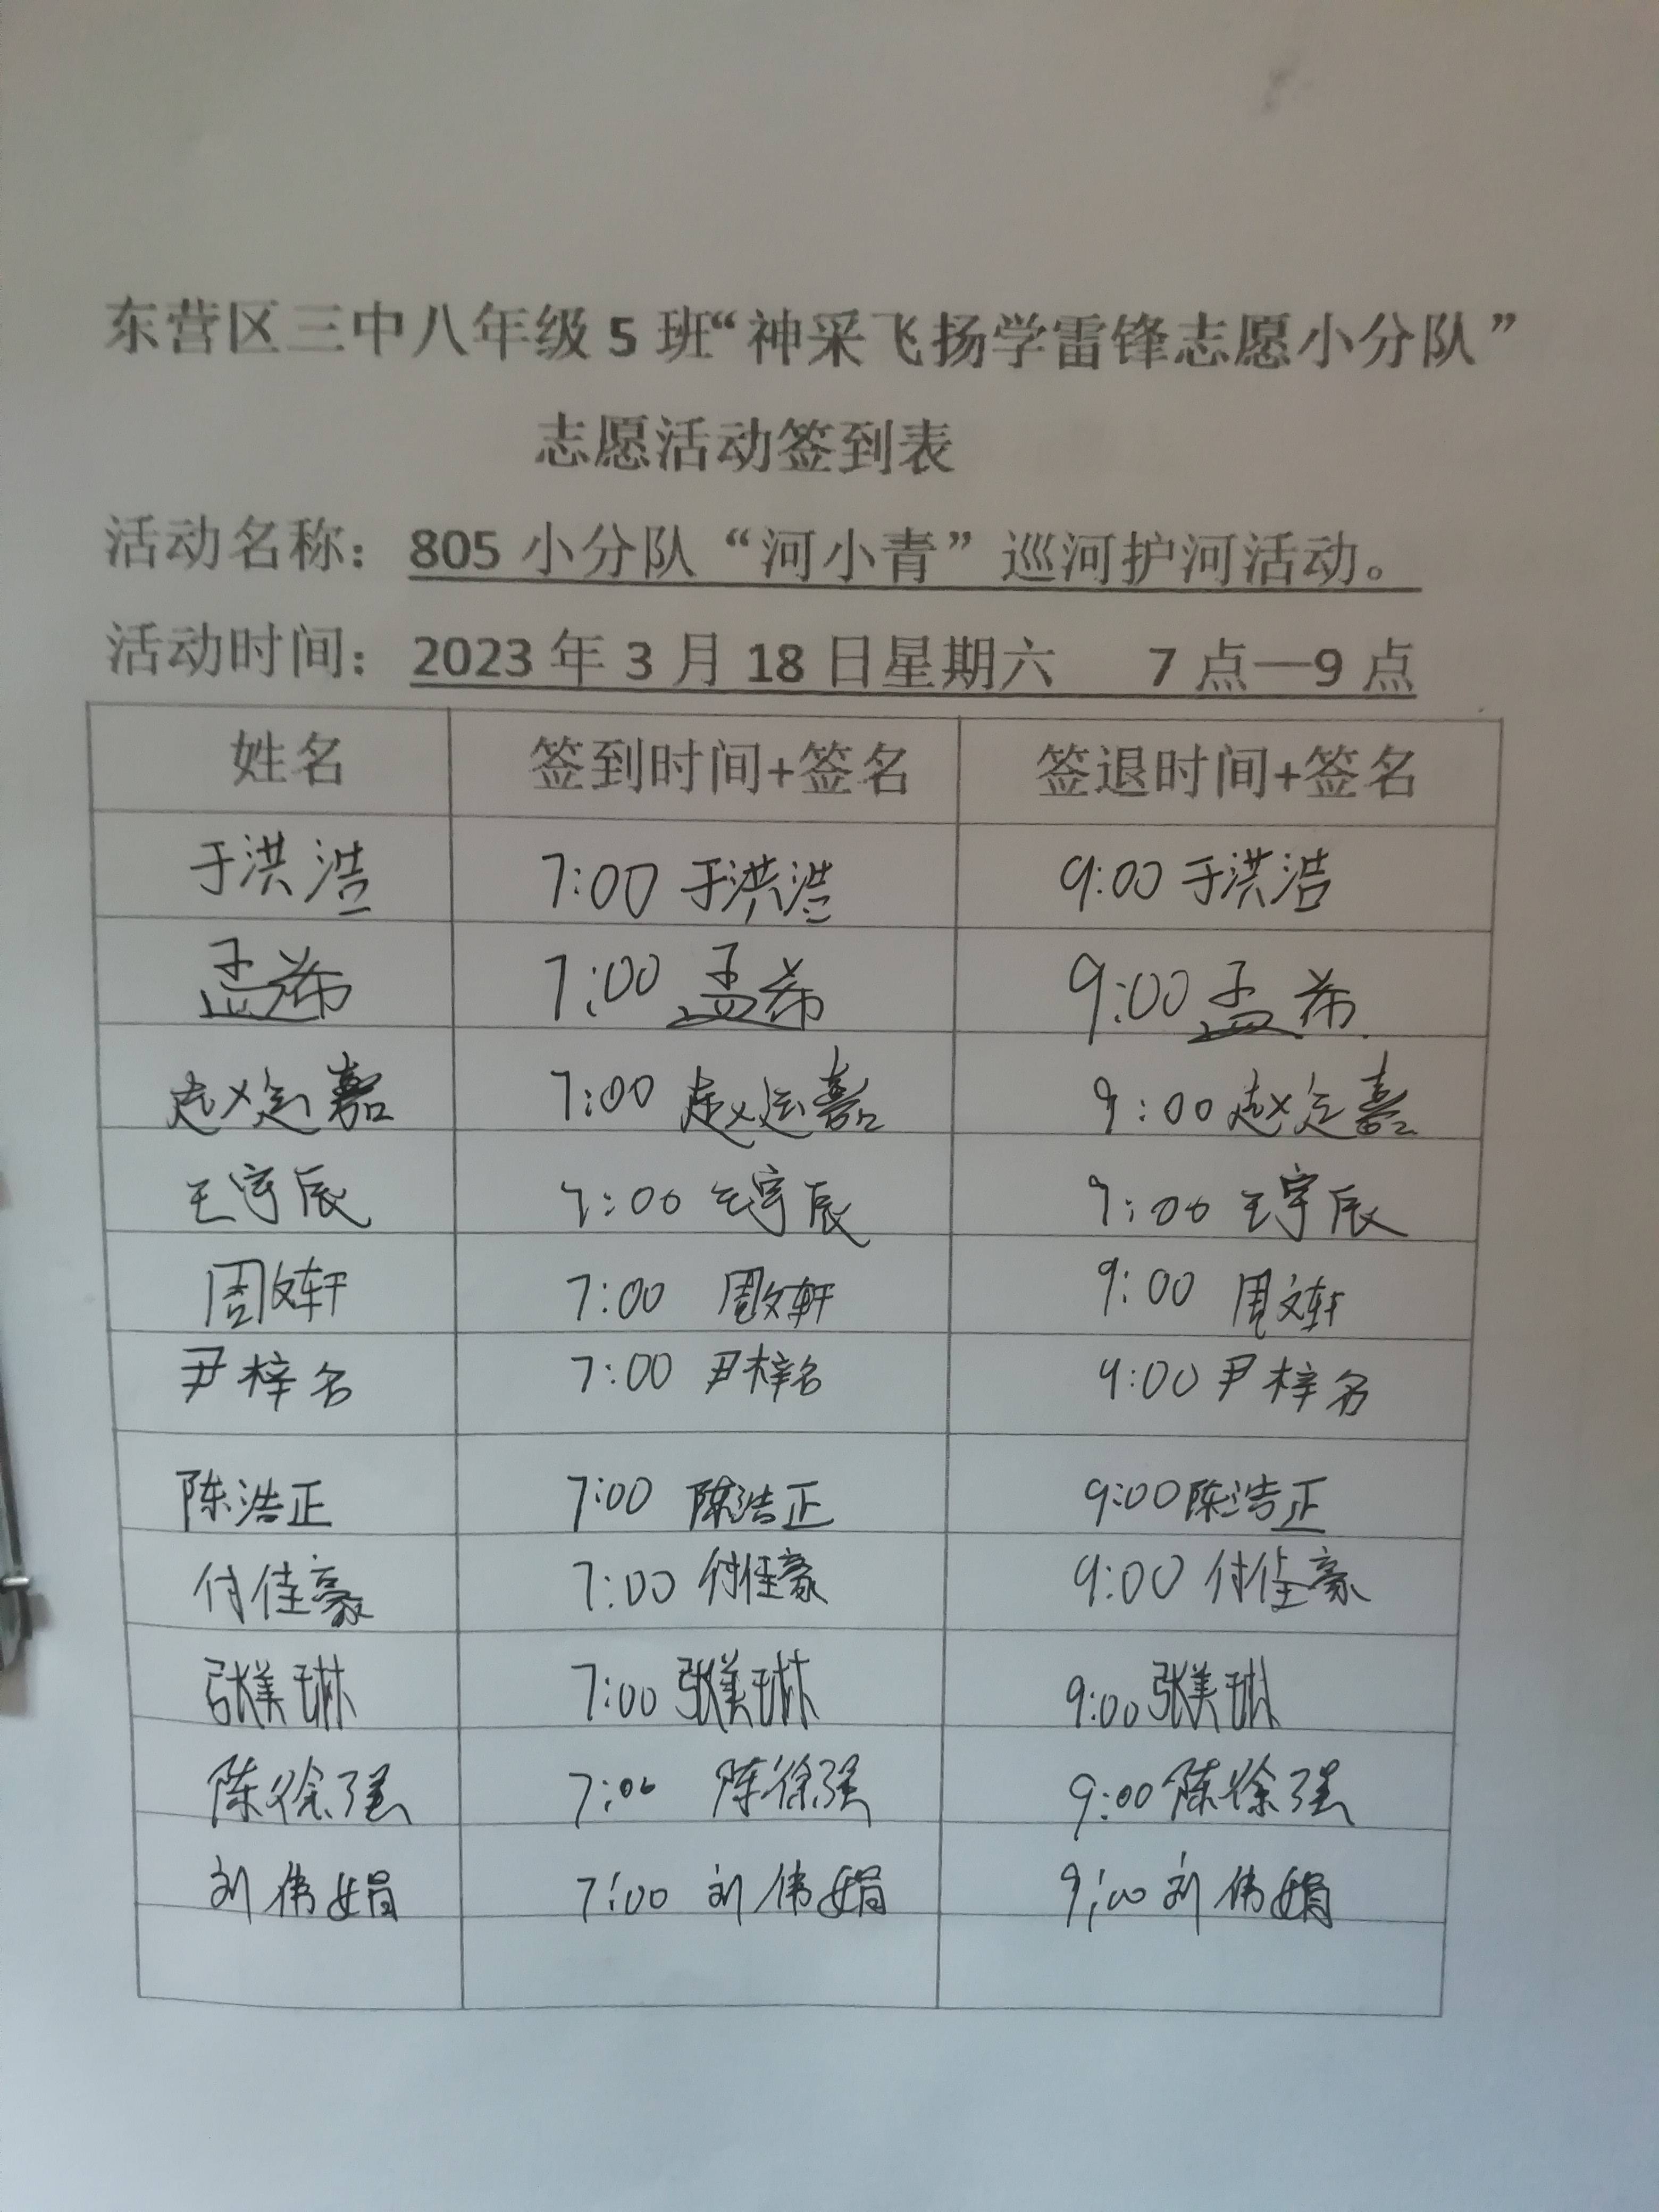 东营区三中八年级5班“神采飞扬学雷锋志愿小分队”
志愿活动签到表
活动名称：805小分队“河小青”巡河护河活动。
活动时间：2023年3月18日星期六 7点—9点
姓名 签到时间+签名 签退时间+签名
于洪浩 7:00 于洪浩 9:00 于洪浩
孟希 7:00 孟希 9:00 孟希
赵定嘉 7:00 赵定嘉 9:00 赵定嘉
王宇辰 7:00 王宇辰 9:00 王宇辰
周文轩 7:00 周文轩 9:00 周文轩
尹梓名 7:00 尹梓名 9:00 尹梓名
陈浩正 7:00 陈浩正 9:00 陈浩正
付佳豪 7:00 付佳豪 9:00 付佳豪
张美琳 7:00 张美琳 9:00 张美琳
陈徐强 7:00 陈徐强 9:00 陈徐强
刘伟娟 7:00 刘伟娟 9:00 刘伟娟